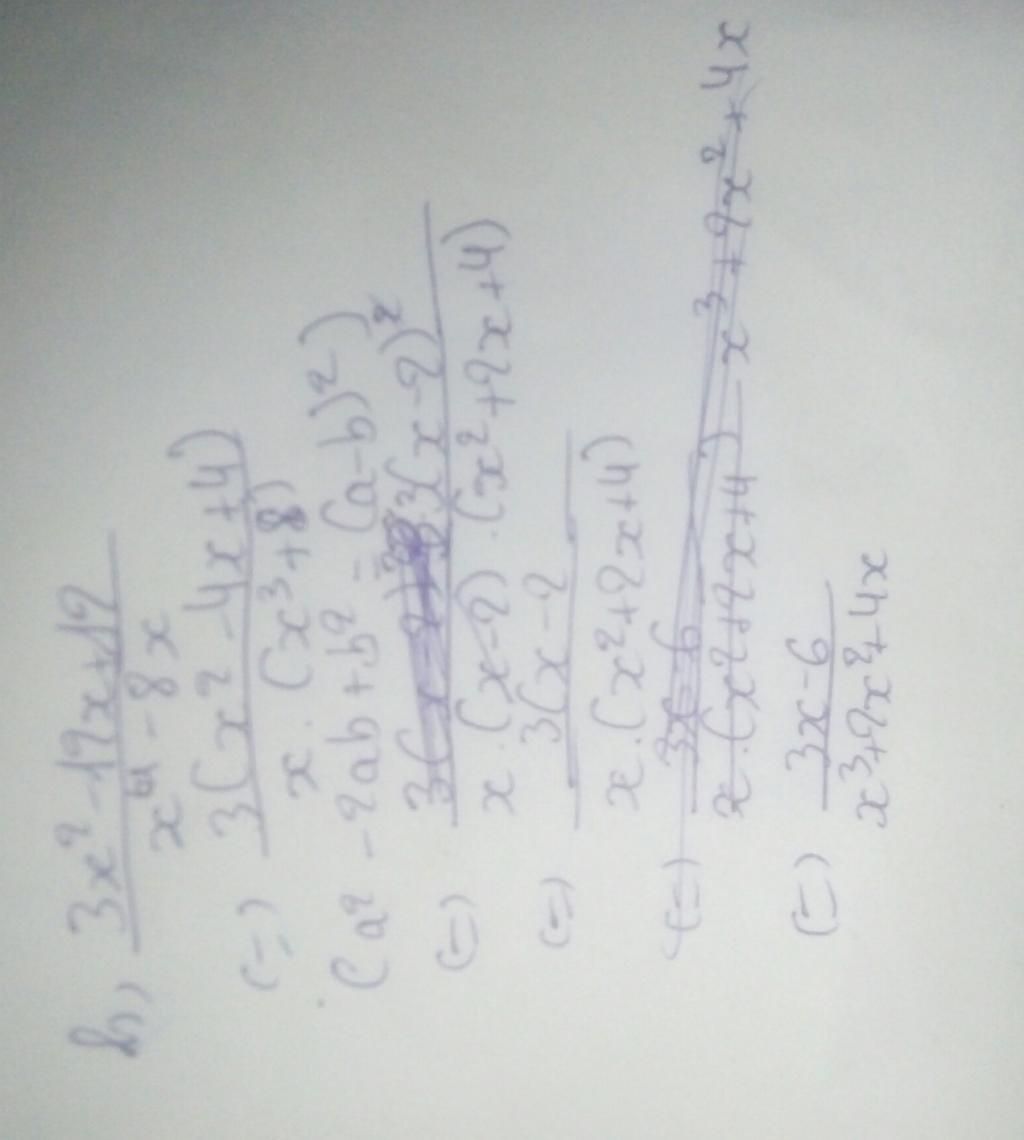 b,
3x² - 12x + 12
x⁴ - 8x
(=) 3(x² - 4x + 4)
x . (x³ + 8)
(a² - 2ab + b² = (a - b)²)
(=) 3(x - 2)²
x . (x - 2) . (x² + 2x + 4)
(=) 3(x - 2
x . (x² + 2x + 4)
(=) 3x - 6
x . (x² + 2x + 4) x³ + 2x² + 4x
(=) 3x - 6
x³ + 2x² + 4x